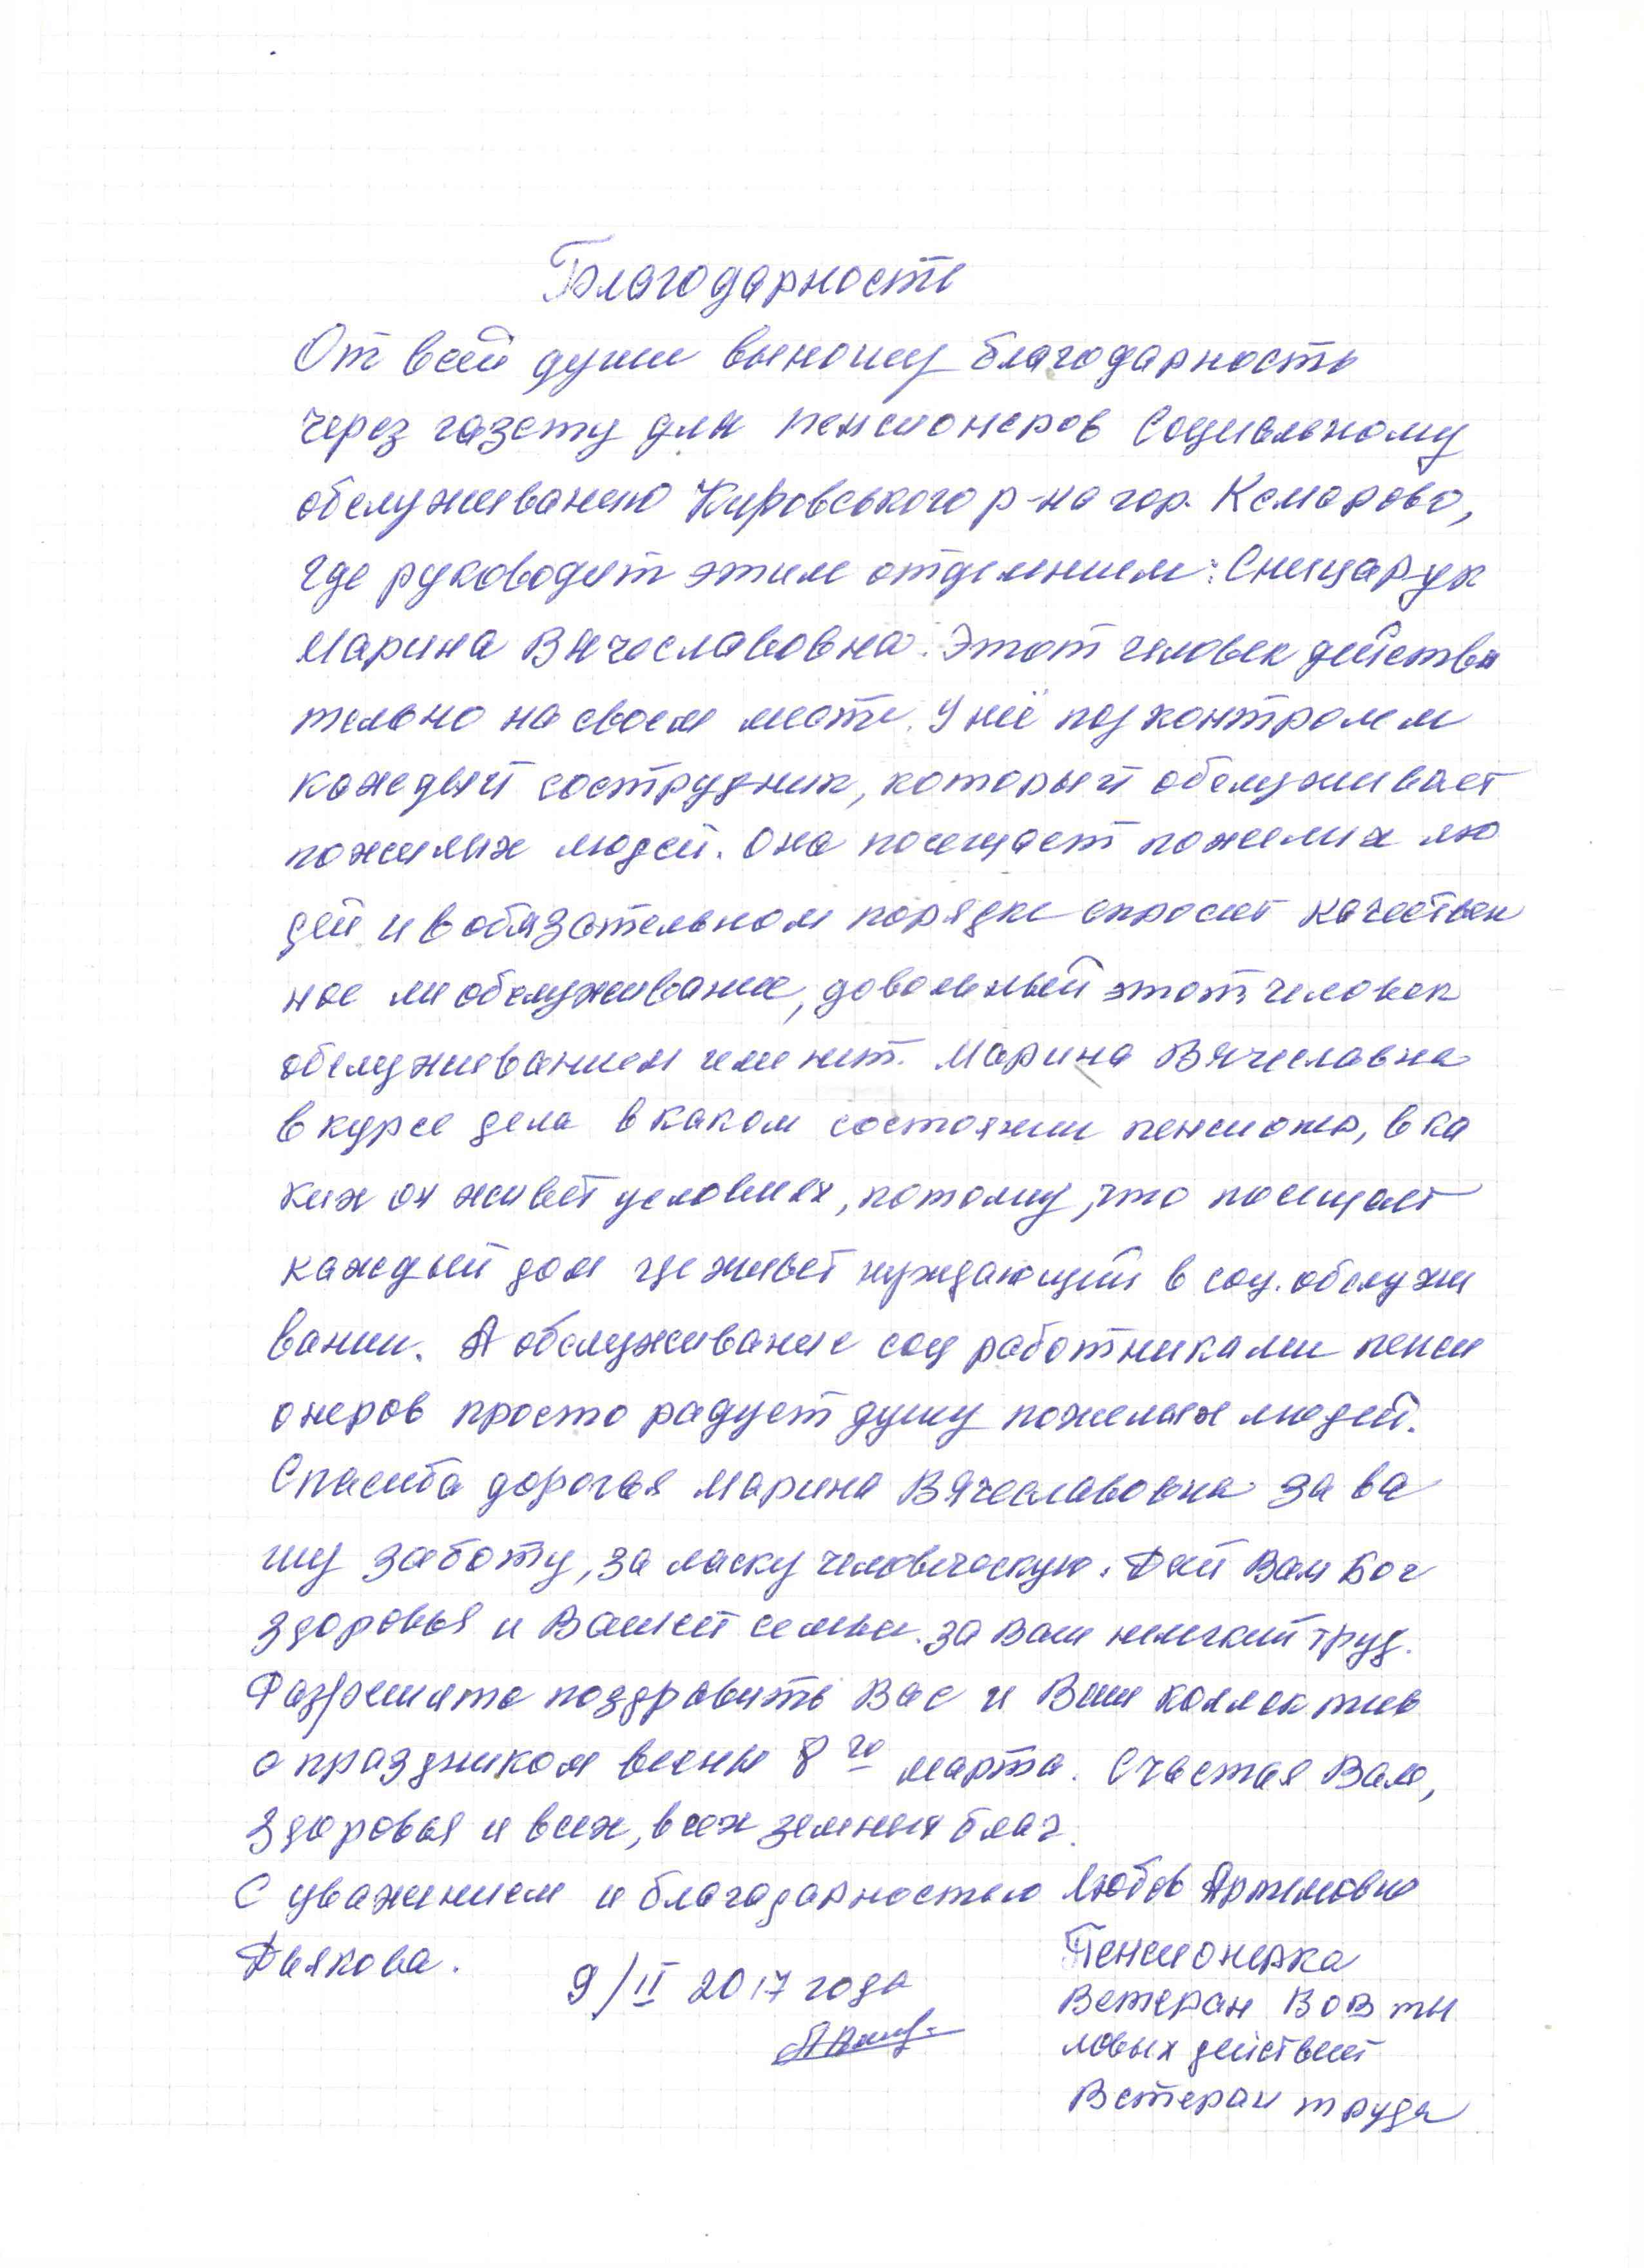 Благодарность
От всей души выношу благодарность
через газету для пенсионеров Социальному
обслуживанию Кировського р-на гор. Кемерово,
где руководит этим отделением: Снецарук
Марина Вячеславовна. Этот человек действи
тельно на своем месте. У неё под контролем
каждый сострудник, который обслуживает
пожилых людей. Она посещает пожилых лю
дей и в обязательном порядке спросит качествен
ное ли обслуживание, довольный этот человек
обслуживанием или нет. Марина Вячеславна
в курсе дела в каком состоянии пенсионер, в ка
ких он живет условиях, потому, что посещает
каждый дом где живет нуждающий в соц. обслужи
вании. А обслуживание соц работниками пенси
онеров просто радует душу пожилых людей.
Спасиба дорогая Марина Вячеславовна за ва
шу заботу, за ласку человеческую. Дай Вам Бог
здоровья и Вашей семьи. за Ваш нелегкий труд.
Разрешите поздравить Вас и Ваш коллектив
с праздником весны 8го марта. Счастья Вам,
здоровья и всех, всех земных благ.
С уважением и благодарностью Любов Артемовна
Дьякова.
9/II 2017 года
Пенсионерка
Ветеран ВОВ ты
ловых действий
Ветеран труда